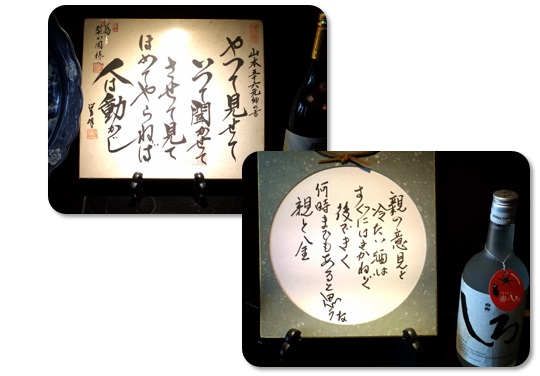 山本五十六元帥の言
やって見せて
いって聞かせて
させて見て
ほめてやらねば
人は動かじ
親の意見と
冷たい酒は
すぐにはきかねど
後できく
何時までもあると思うな
親と金
しろ